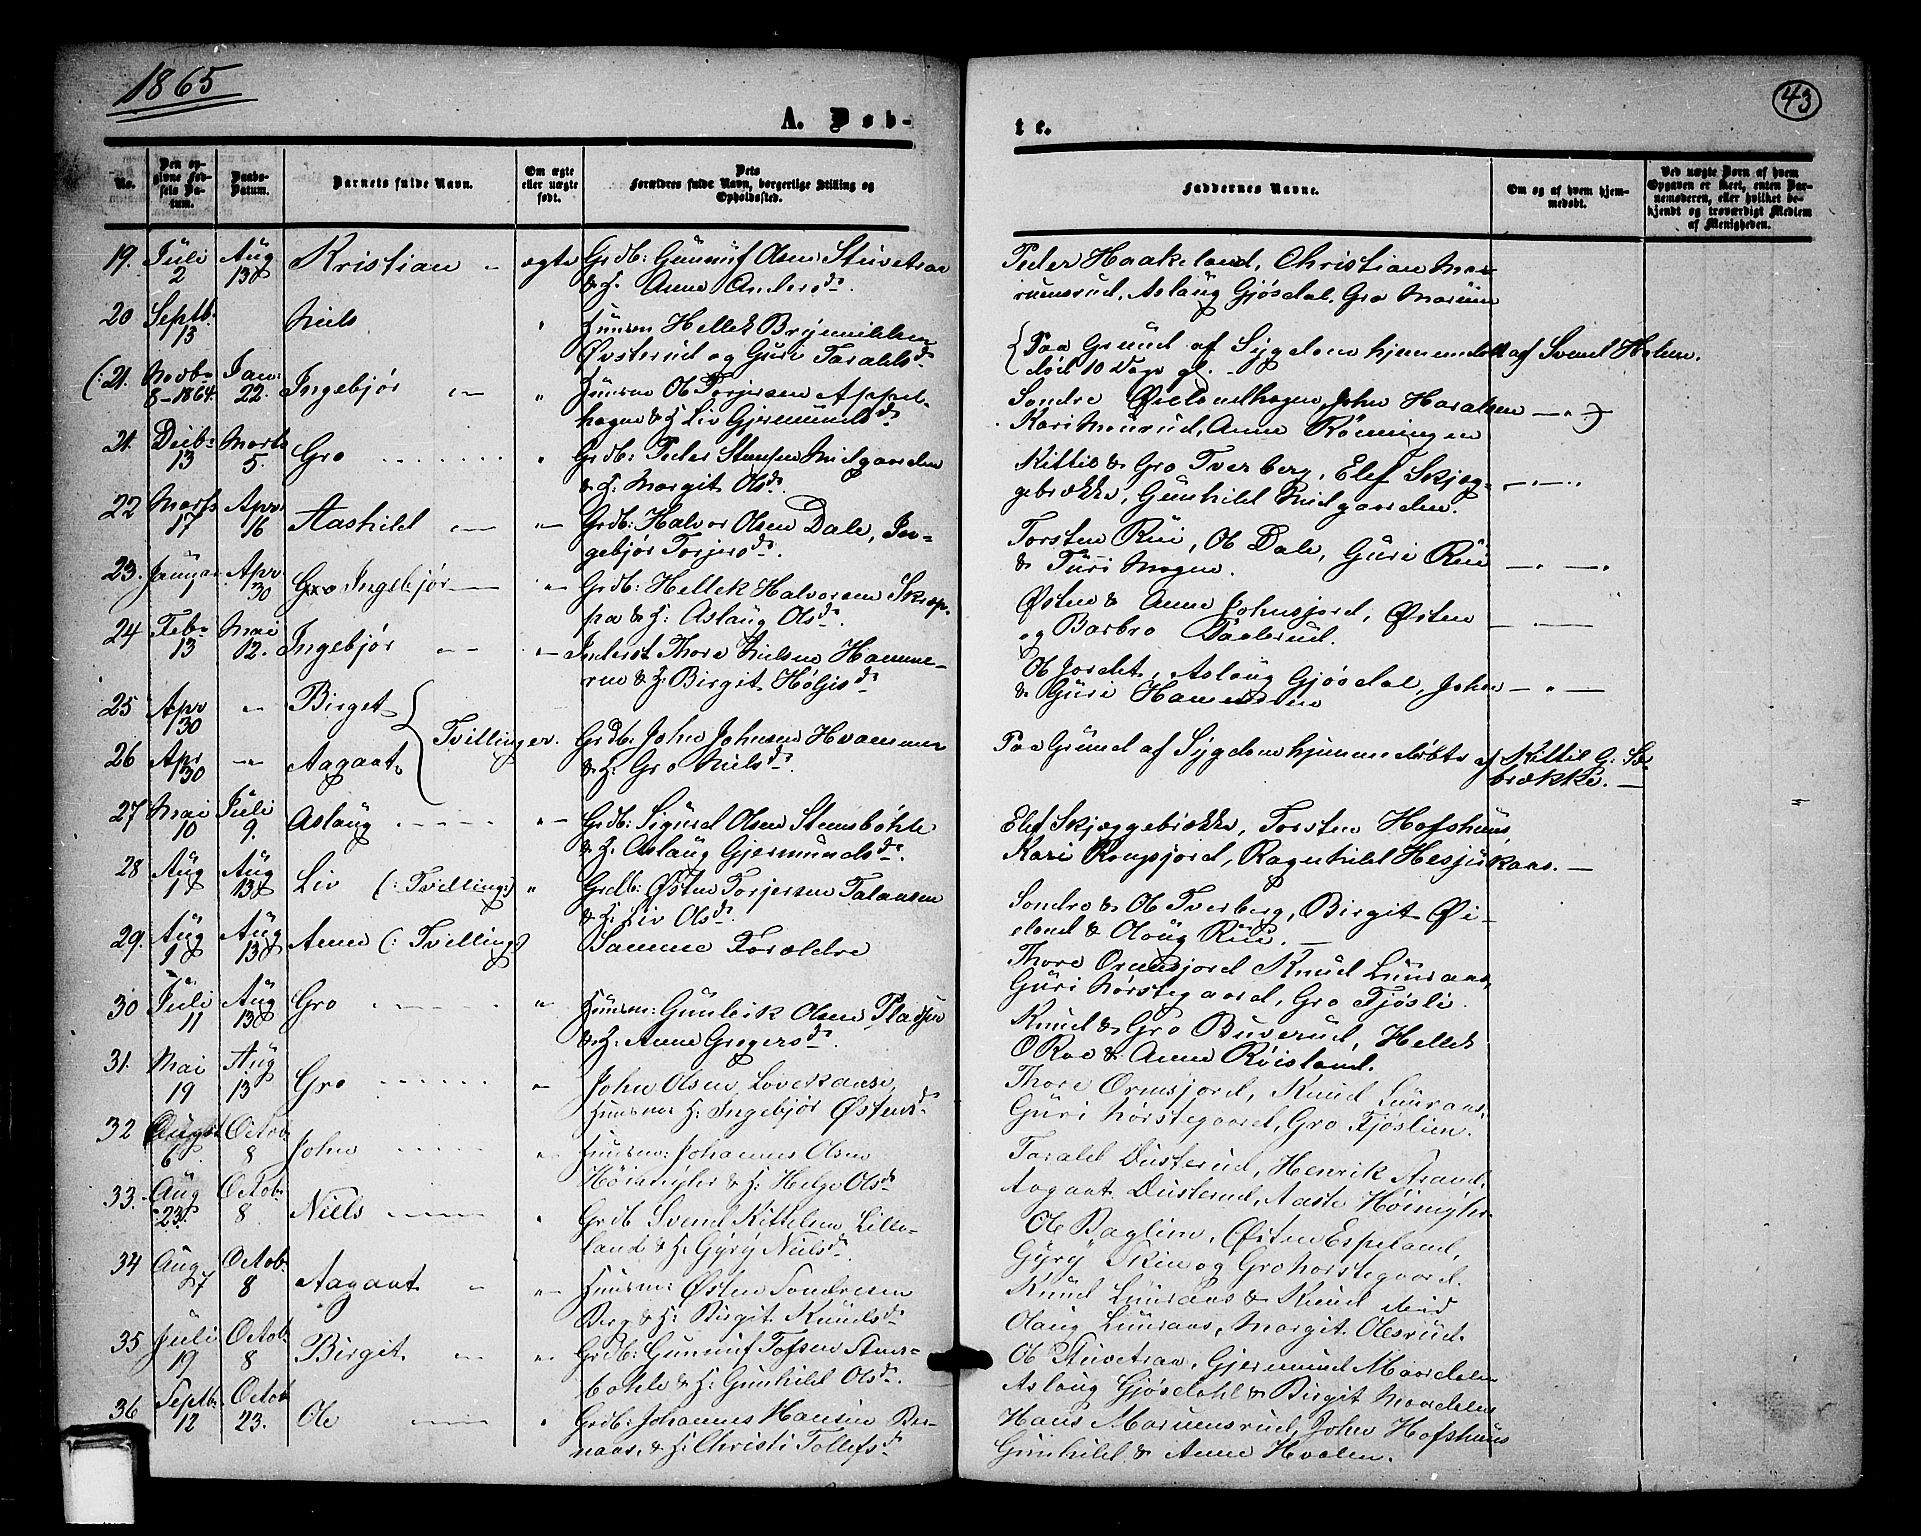 1865
43
A. Døb-
te.
No.
Den op-
givne Fød-
sels Da-
tum.
Daabs-
Datum.
Barnets fulde Navn.
Om ægte
eller uægte
født.
Dets
Forældres fulde Navn, borgerlige Stilling og
Opholdssted.
Faddernes Navne.
Om og af hvem hjem-
medøbt.
Ved uægte Børn af hvem
Opgaven er skeet, enten Bar-
nemoderen, eller hvilket be-
kjendt og troværdigt Medlem
af Menigheden.
19. Juli 2 Aug 13 Kristian ægte Grdb: Gunnuf Olsen Stuvetraa
& H. Anne Andersd.
Peder Haakeland, Christian Mor-
rumsrud, Aslaug Gjøsdal, Gro
20 Septb. 13 Niels Huusm Hellek
Østerud og Guri Taraldsd
Paa Grund af Sygdom hjemmedøbt af Svend Holm.
død 10 Dage gl.
(:21. Novb. 8-1864 Jan: 22. Ingebjør Huusm Ole Torjersen Appel-
hagen & H Liv Gjermundsd
Sondre Øielandhagen, John
Kari Anne Rønningen
21. Decb. 13 Marts 5. Gro Grdb: Peder Stensen Midgaarden
& H: Margit Olsd.
Kittil & Gro Tverberg, Elef Skjeg-
gebrække, Gunhild Midgaarden.
22 Marts 17 Apr 16 Aashild Grdb: Halvor Olsen Dale, In-
gebjør Torjersd.
Torsten Rui, Ole Dale, Guri Rui
& Turi Mogen.
23. Januar Apr 30 Gro Ingebjør Grdb: Hellek Halvorsen Skrep-
pa & H: Aslaug Olsd.
Østen & Anne Johnsjord, Østen
og Barbro
24 Feb. 13 Mai 12. Ingebjør Inderst Thore Nielsen Hamme-
ren & H: Birgit Høljesd
Ole Jordet, Aslaug Gjøsdal, John
& Guri Hammeren
25 Apr 30 Birget
Tvillinger. Grdb. John Johnsen Hvammen
26 Apr 30 Aagaat & H. Gro Nielsd.
Paa Grund af Sygdom hjemmedøbte af Kittil G. Sæ-
brække.
27 Mai 10 Juli 9. Aslaug Grdb: Sigurd Olsen Stensbøhle
& H. Aslaug Gjermundsd.
Elef Skjæggebrække, Torsten Hofshuus
Kari Rongsjord, Ragnhild
28 Aug 1 Aug 13 Liv (: Tvilling:) Grdb: Østen Torjersen Talaasen
& H: Liv Olsd.
Sondre & Ole Tverberg, Birgit Øi-
eland & Olaug Rui.
29. Aug 1 Aug 13 Anne (: Tvilling:) Samme Forældre
Thore Ormsjord Knud Luuraas,
Guri Norstegaard, Gro Fjøsli.
30 Juli 11 Aug 13 Gro Huusm: Gunleik Olsen Pladsen
& H. Anne Gregersd.
Knud & Gro Buverud, Hellek
O Roe & Anne Røisland.
31. Mai 19 Aug 13 Gro John Olsen
Huusm H. Ingebjør Østensd
Thore Ormsjord, Knud Luuraas,
Guri Norstegaard, Gro Fjøslien.
32 August 6 Octob 8 John Huusm: Johannes Olsen
Høimyhr & H. Helge Olsd
Tarald Dusterud, Henrik
Aagaat Dusterud, Aaste Høimyhr
33. Aug 23. Octob 8 Niels Grdb Svend Kittelsen Lille-
land & H. Gyry Nielsd.
Ole Baglien, Østen Espeland,
Gyry Skin og Gro Norstegaard.
34 Aug 27 Octob. 8 Aagaat Huusm: Østen Sondresen
Berg & H. Birgit Knudsd
Knud Luuraas & Knud
Olaug Luuraas, Margit Olesrud.
35 Juli 19 Octob. 8 Birgit Grdb: Gunnuf Tofsen Stens-
bøhle & H: Gunhild Olsd.
Ole Stuvetraa, Gjermund Maardalen
Aslaug Gjøsdahl & Birgit Maardalen
36 Septb. 12 Octob 23. Ole Grdb: Johannes Hansen
& H: Christi Tollefsd
Hans Marumsrud, John Hofshuus
Gunhild & Anne Hvalen.